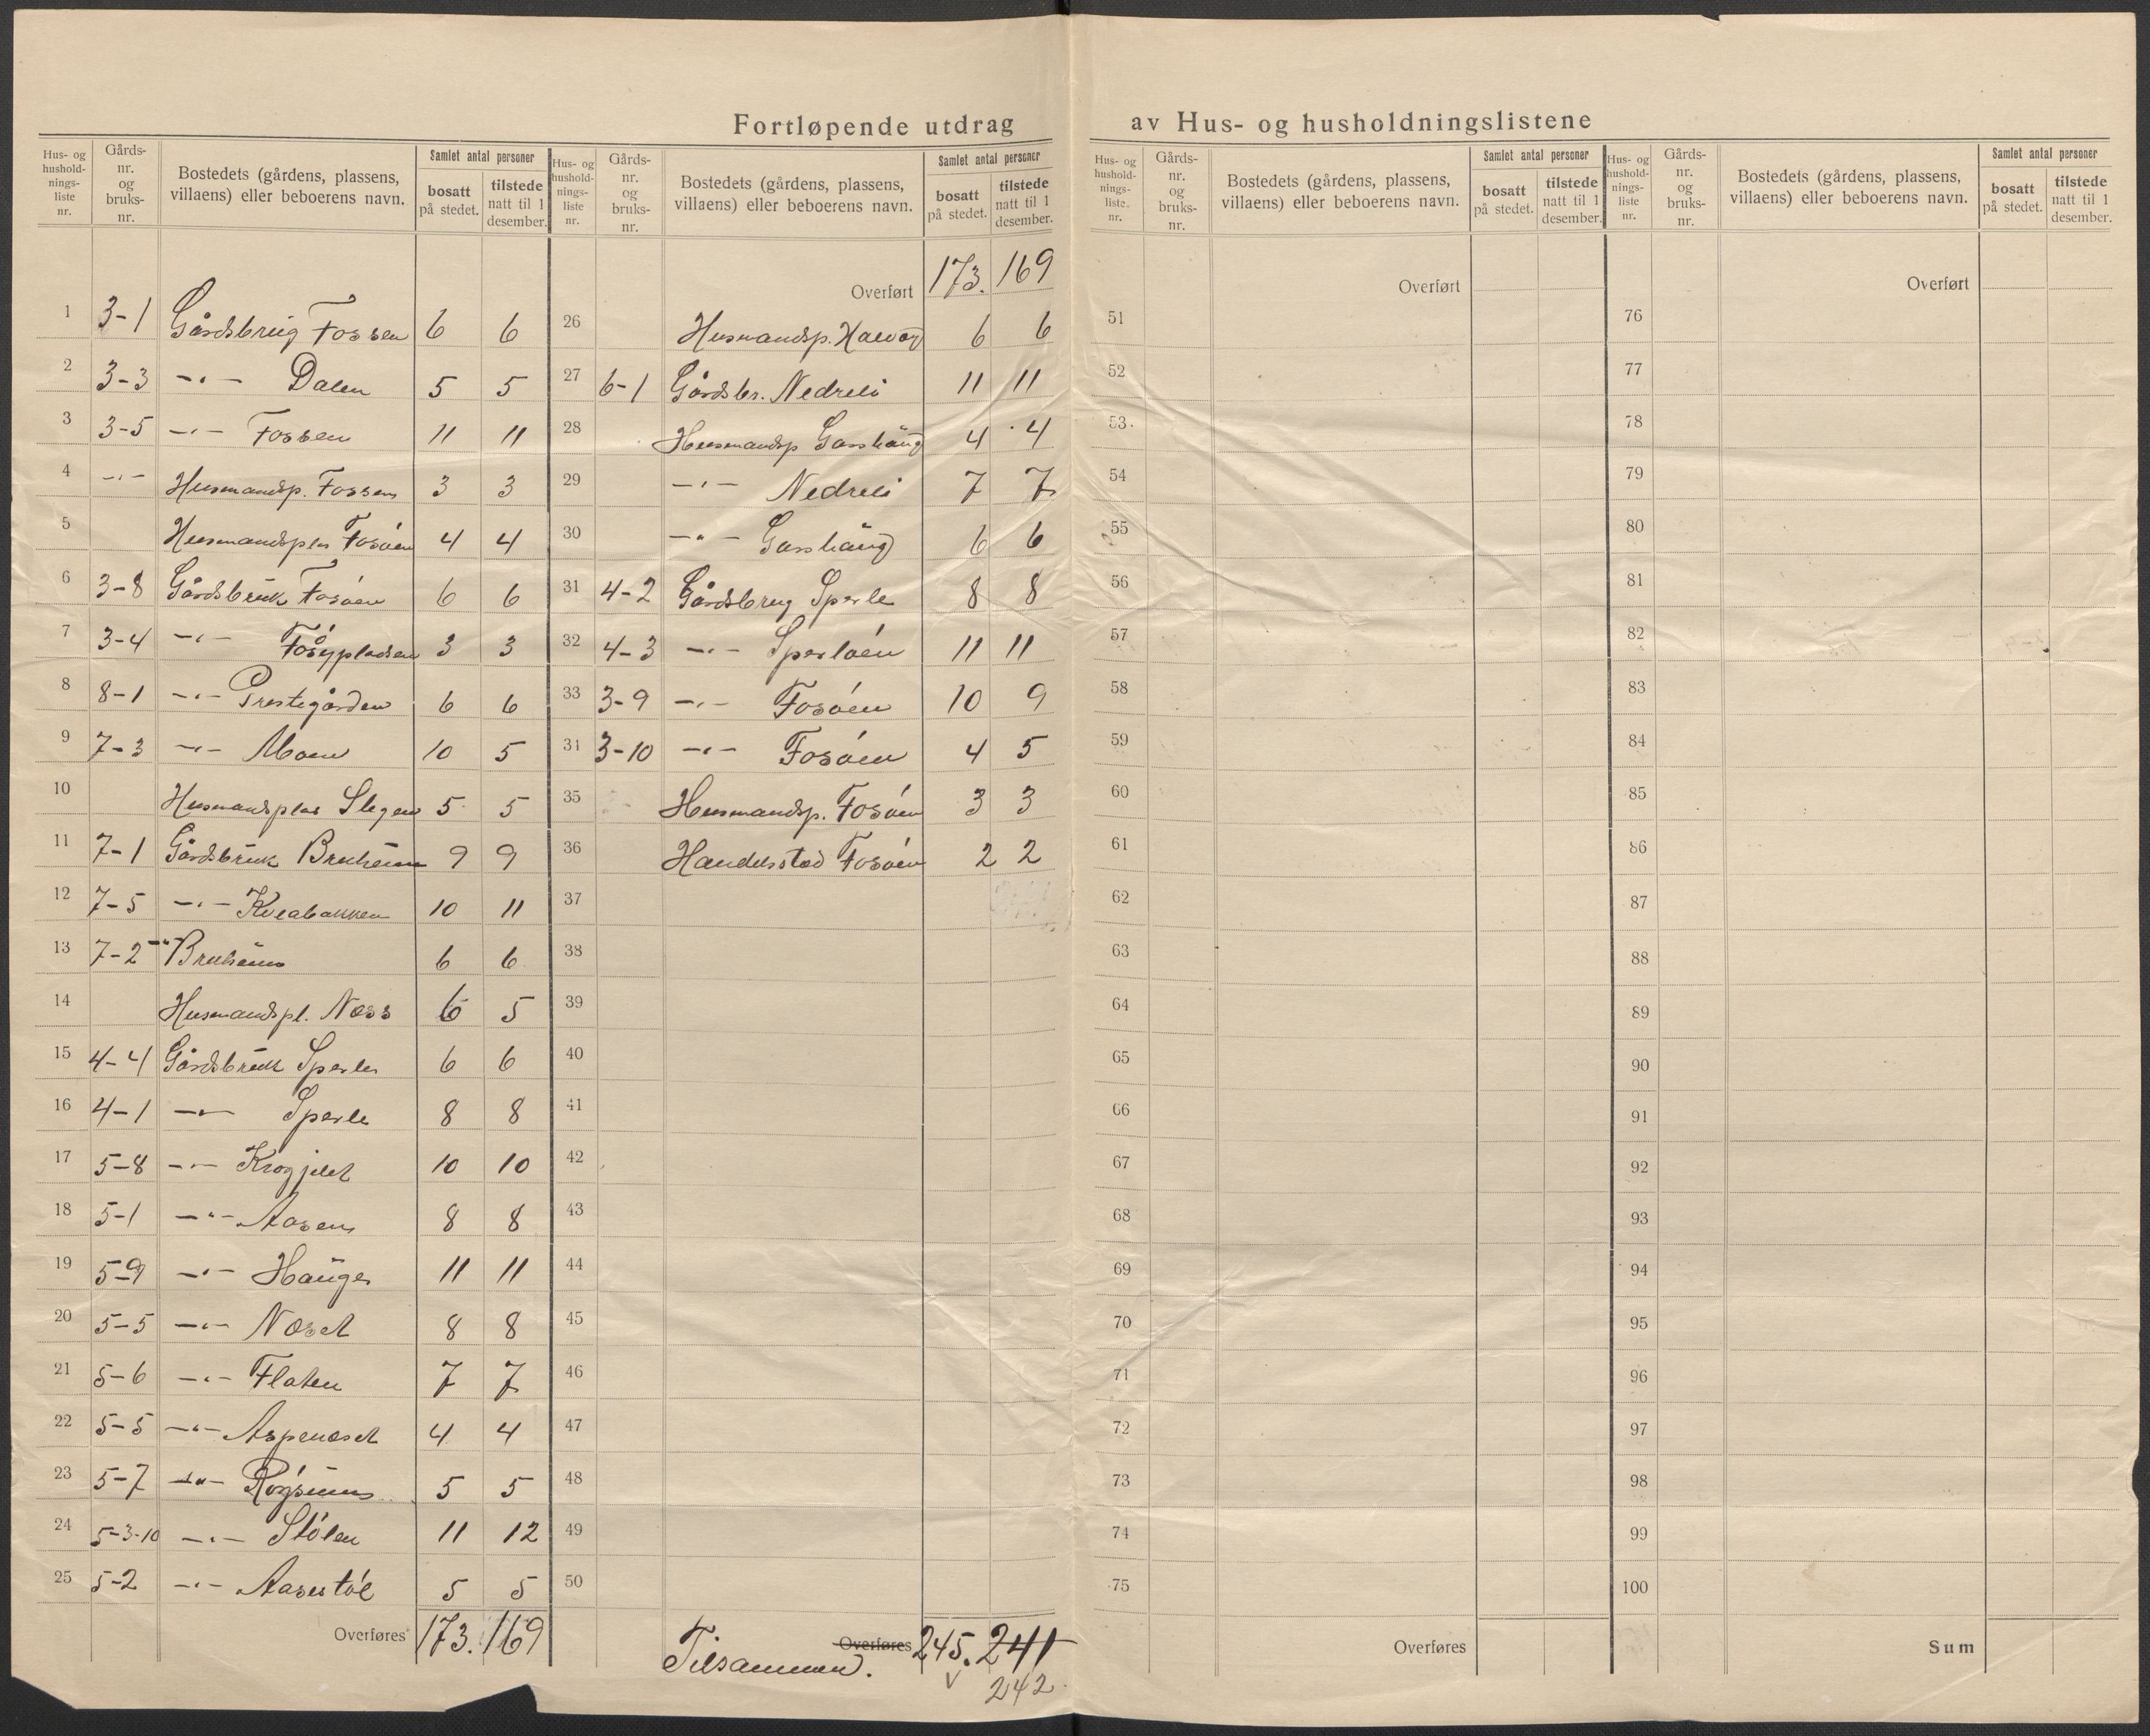 Fortløpende utdrag av Hus- og husholdningslistene
Hus- og hushold-nings-liste nr. Gårds-nr. og bruks-nr. Bostedets (gårdens, plassens, villaens) eller beboerens navn. Samlet antal personer bosatt på stedet. tilstede natt til 1 desember.
1 3-1 Gårdsbrug Fossen 6 6
2 3-3 -"- Dalen 5 5
3 3-5 -"- Fossen 11 11
4 -"- Husmandsp. Fossen 3 3
5 Husmandsplas Fosøen 4 4
6 3-8 Gårdsbruk Fosøen 6 6
7 3-4 -"- Fosøypladsen 3 3
8 8-1 -"- Prestegården 6 6
9 7-3 -"- Moen 10 5
10 Husmandsplas Stegen 5 5
11 7-1 Gårdsbruk Bruheim 9 9
12 7-5 -"- Kveabakken 10 11
13 7-2 -"- Bruheim 6 6
14 Husmandspl. Næss 6 5
15 4-4 Gårdsbruk Sperle 6 6
16 4-1 -"- Sperle 8 8
17 5-8 -"- Krogjelet 10 10
18 5-1 -"- Aasen 8 8
19 5-9 -"- Hauger 11 11
20 5-5 -"- Næset 8 8
21 5-6 -"- Flaten 7 7
22 5-5 -"- Aspenæset 4 4
23 5-7 -"- Røysum 5 5
24 5-3-10 -"- Stølen 11 12
25 5-2 -"- Aasestøl 5 5
Overføres 173. 169
Hus- og hushold-nings-liste nr. Gårds-nr. og bruks-nr. Bostedets (gårdens, plassens, villaens) eller beboerens navn. Samlet antal personer bosatt på stedet. tilstede natt til 1 desember.
Overført 173. 169
26 Husmandsp. 6 6
27 6-1 Gårdsbr. Nedreli 11 11
28 Husmandsp 4 4
29 -"- Nedreli 7 7
30 -"- 6 6
31 4-2 Gårdsbrug Sperle 8 8
32 4-3 -"- Sperløen 11 11
33 3-9 -"- Fosøen 10 9
31 3-10 -"- Fosøen 4 5
35 Husmandsp. Fosøen 3 3
36 Handelsstad Fosøen 2 2
37
38
39
40
41
42
43
44
45
46
47
48
49
50
Overføres 245. 241
Tilsammen.
242
Hus- og hushold-nings-liste. nr. Gårds-nr. og bruks-nr. Bostedets (gårdens, plassens, villaens) eller beboerens navn. Samlet antal personer bosatt på stedet. tilstede natt til 1 desember.
Overført
51
52
53
54
55
56
57
58
59
60
61
62
63
64
65
66
67
68
69
70
71
72
73
74
75
Overføres
Hus- og hushold-nings-liste nr. Gårds-nr. og bruks-nr. Bostedets (gårdens, plassens, villaens) eller beboerens navn. Samlet antal personer bosatt på stedet. tilstede natt til 1 desember.
Overført
76
77
78
79
80
81
82
83
84
85
86
87
88
89
90
91
92
93
94
95
96
97
98
99
100
Sum